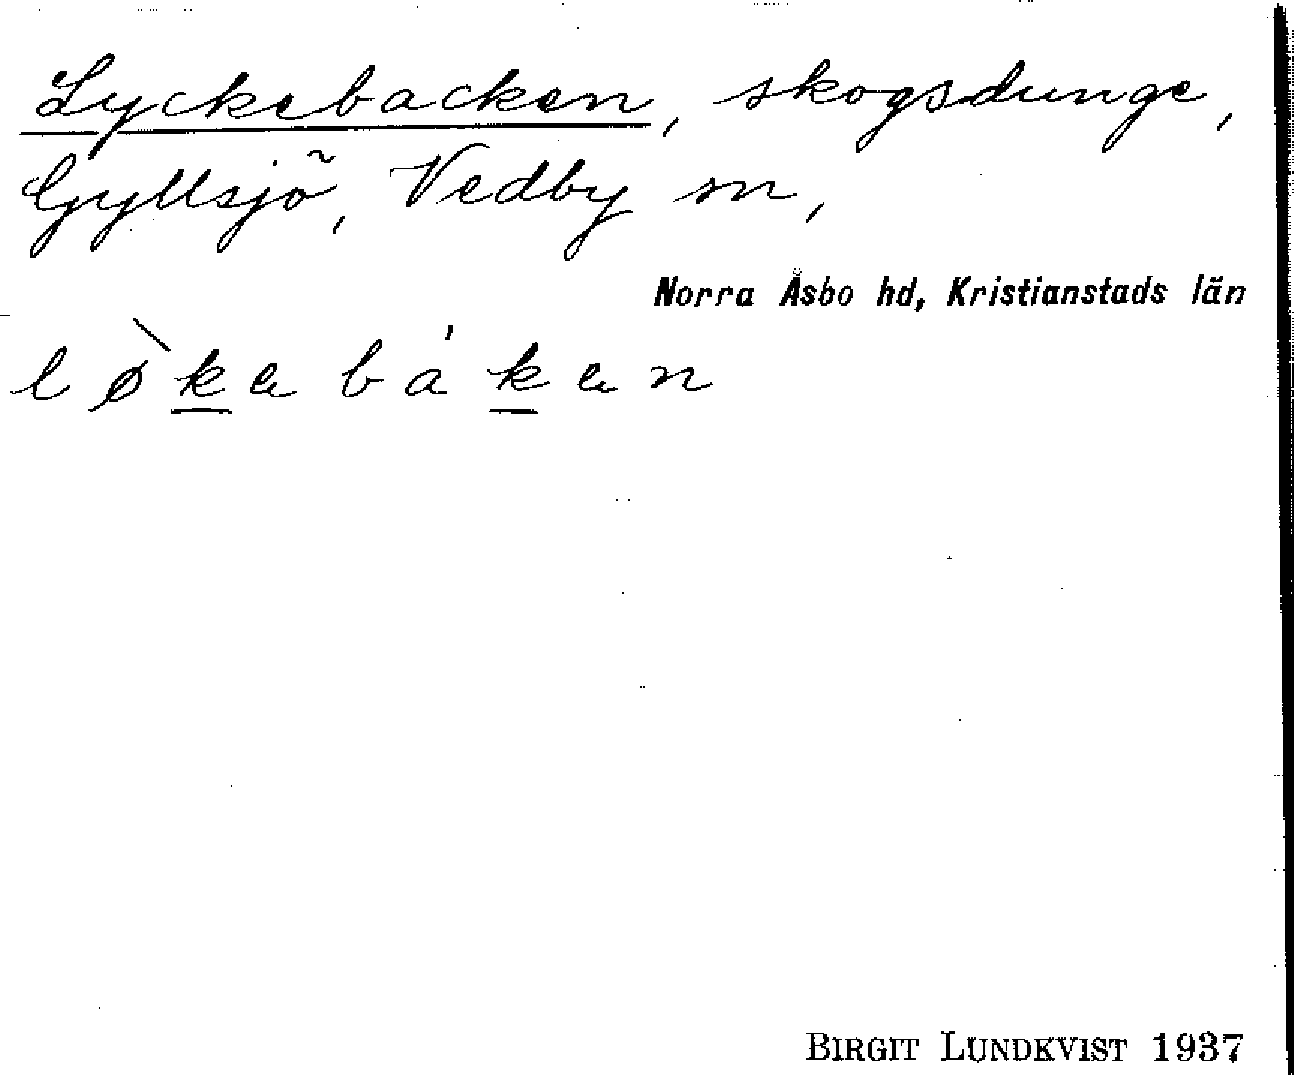 Lyckebacken, skogsdunge,
Gyllsjö, Vedby sn,
Norra Åsbo hd, Kristianstads län
lø̀k̲ebák̲en
BIRGIT LUNDKVIST 1937